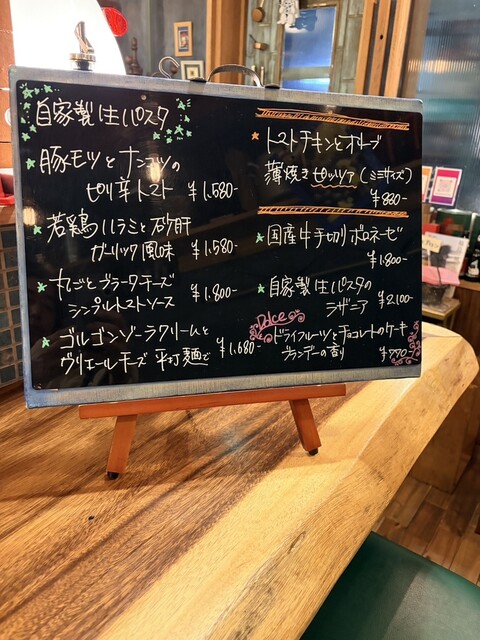 自家製生パスタ
豚モツとナンコツの
ピリ辛トマト ¥1.580-
若鶏ハラミと砂肝
ガーリック風味 ¥1.580-
丸ごとブラータチーズ
シンプルトマトソース ¥1.800-
ゴルゴンゾーラクリームと
グリエールチーズ 平打麺で ¥1.680-
トマトチキンとオリーブ
薄焼きピッツァ (ミニサイズ)
¥880-
国産牛手切りボロネーゼ
¥1.800-
自家製生パスタの
ラザニア ¥2.100-
Dolce
ドライフルーツとチョコレートのケーキ
ブランデーの香り ¥770-